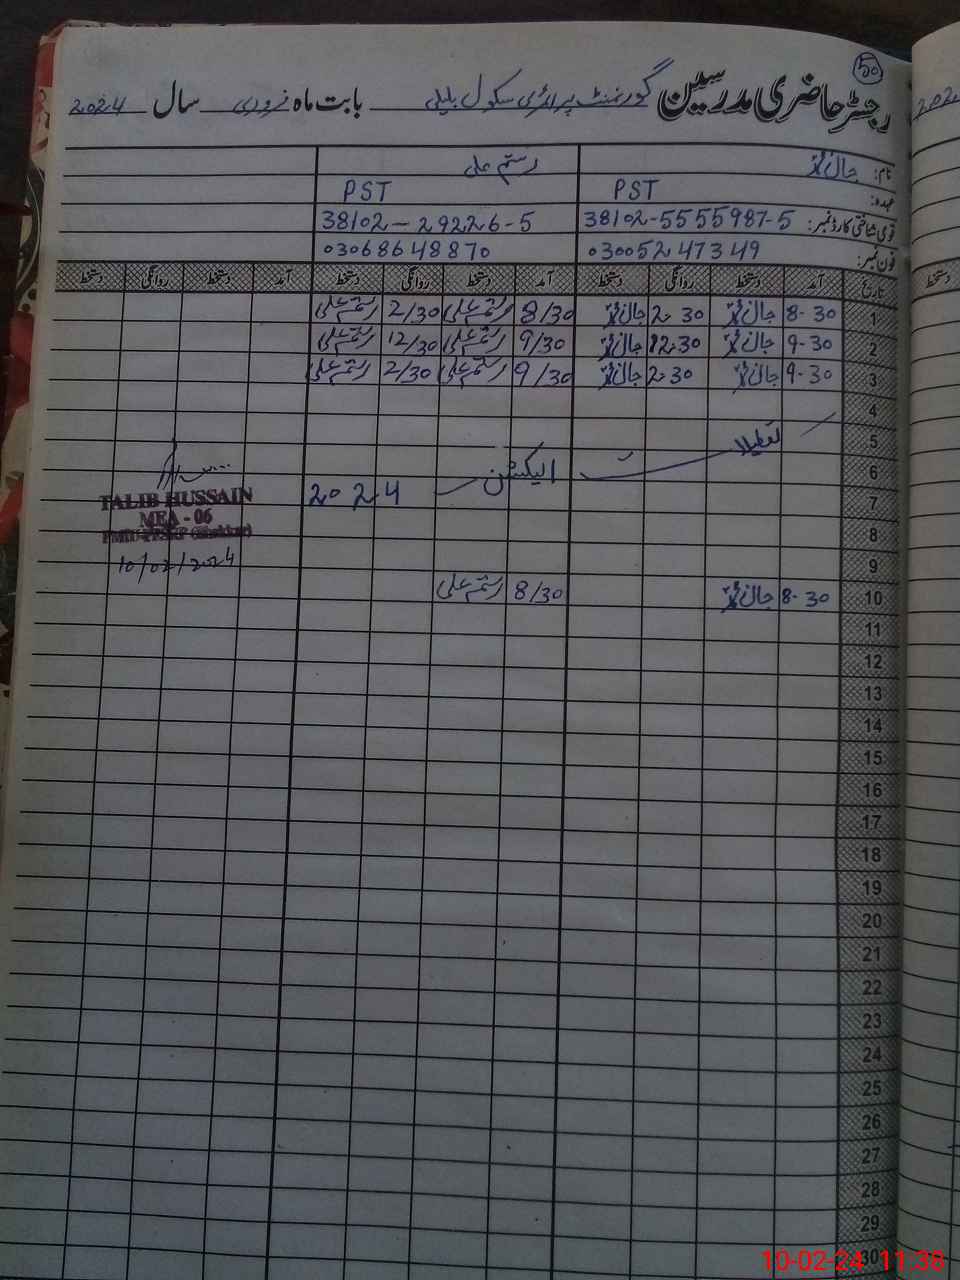 50
رجسٹر حاضری مدرسین گورنمنٹ پرائمری سکول بابت ماہ فروری سال 2024
نام: رستم علی
عہدہ: PST PST
قومی شناختی کارڈ نمبر: 38102-5555987-5 38102-29226-5
فون نمبر: 03005247349 03068648870
تاریخ آمد دستخط روانگی دستخط آمد دستخط روانگی دستخط آمد دستخط روانگی دستخط
1 8-30 2-30 8/30 رستم علی 2/30 رستم علی
2 9-30 12-30 9/30 رستم علی 12/30 رستم علی
3 9-30 2-30 9/30 رستم علی 2/30 رستم علی
4
5
6 تعطیلات الیکشن
7 2024
TALIB HUSSAIN
MEA - 06
8
9
10/02/2024
10 8-30 8/30 رستم علی
11
12
13
14
15
16
17
18
19
20
21
22
23
24
25
26
27
28
29
30
10-02-24 11:38